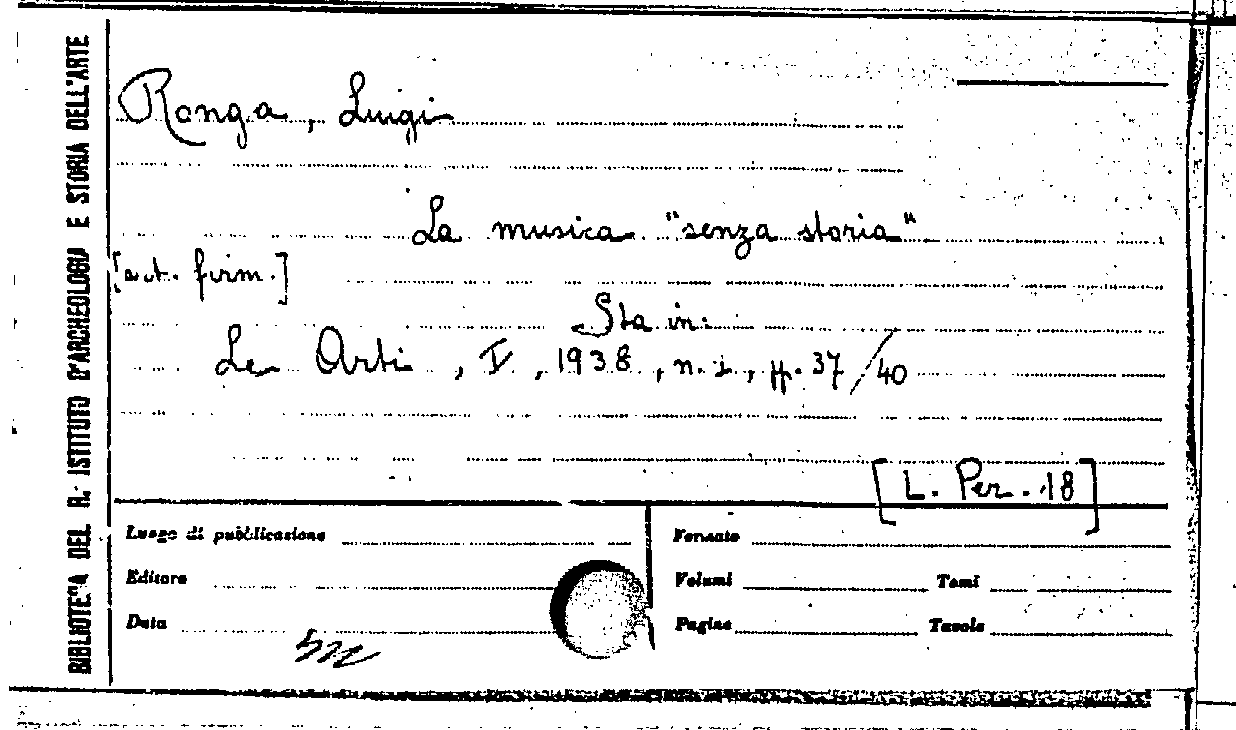 BIBLIOTECA DEL R. ISTITUTO D'ARCHEOLOGIA E STORIA DELL'ARTE
Ronga, Luigi
La musica "senza storia"
[art. firm.]
Sta in:
Le Arti, I, 1938, n. 1, pp. 37/40
[L. Per. 18]
Luogo di pubblicazione
Formato
Editore
Volumi
Tomi
Data
Pagine
Tavole